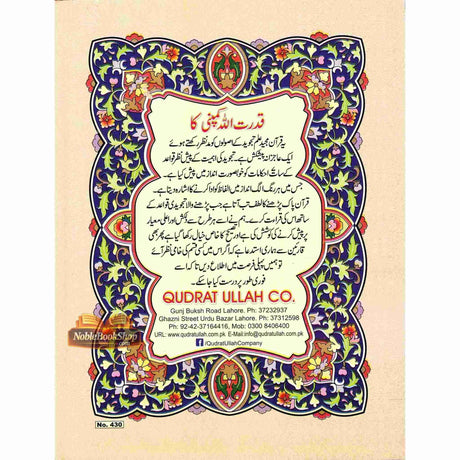 قدرت اللہ کمپنی کا
یہ قرآن مجید علم تجوید کے اصولوں کو مدنظر رکھتے ہوئے
ایک عاجزانہ پیشکش ہے۔ تجوید کی اہمیت کے پیش نظر قواعد
کے ساتھ احکامات کو خوبصورت انداز میں پیش کیا ہے۔
جس میں ہر رنگ الگ انداز میں الفاظ کو ادا کرنے کا اشارہ دیتا ہے۔
قرآن پاک پڑھنے کا لطف تب آتا ہے جب پڑھنے والا تجویدی قواعد کے
ساتھ اس کی قرأت کرے۔ ہم نے اسے ہر طرح سے دلکش اور اعلیٰ معیار
پر پیش کرنے کی کوشش کی ہے اور تصحیح کا خاص خیال رکھا گیا ہے پھر بھی
قارئین سے ہماری استدعا ہے کہ اگر اس میں کسی قسم کی خامی نظر آئے
تو ہمیں پہلی فرصت میں اطلاع دیں تاکہ اسے
فوری طور پر درست کیا جا سکے۔
QUDRAT ULLAH CO.
Gunj Buksh Road Lahore. Ph: 37232937
Ghazni Street Urdu Bazar Lahore. Ph: 37312598
Ph: 92-42-37164416, Mob: 0300 8406400
URL: www.qudratullah.com.pk, E-Mail:info@qudratullah.com.pk
/QudratUllahCompany
NobleBookShop
No. 430